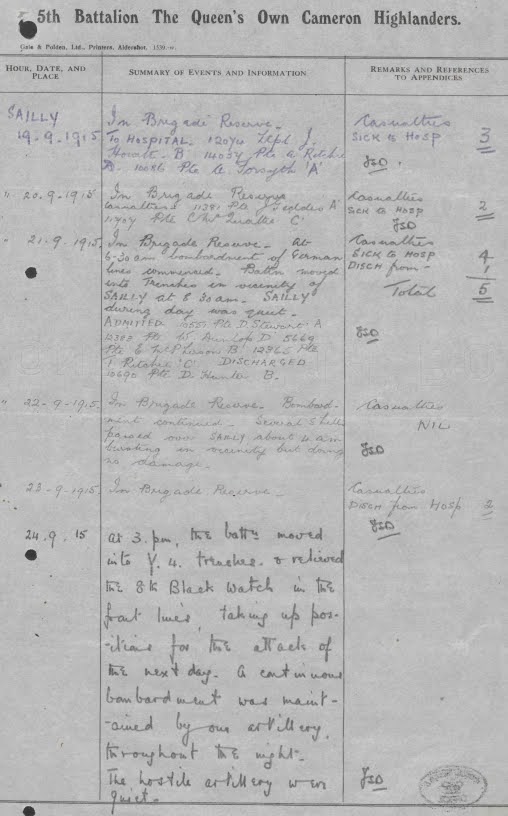 5th Battalion The Queen's Own Cameron Highlanders.
Gale & Polden, Ltd., Printers, Aldershot.
HOUR, DATE, AND PLACE
SUMMARY OF EVENTS AND INFORMATION
REMARKS AND REFERENCES TO APPENDICES
SAILLY
19-9-1915
In Brigade Reserve.
To HOSPITAL. J.
B. 14054 Pte A Ritchie
Pte Forsyth 'A'
Casualties
SICK to HOSP 3
JSD.
" 20-9-1915
In Brigade Reserve
Casualties 11391 Pte J Geddes A
11707 Pte C
Casualties
SICK to HOSP 2
JSD
" 21-9-1915
In Brigade Reserve. At
6-30am bombardment of German
lines commenced. Battn moved
into Trenches in vicinity of
SAILLY at 8 30am. SAILLY
during day was quiet.
ADMITTED Pte D. Stewart A
D 5669
Pte McPherson B' 12865 Pte
T Ritchie 'C' DISCHARGED
10690 Pte D. Hunter B.
Casualties
SICK to HOSP 4
DISCH from - 1
Total 5
JSD
" 22-9-1915
In Brigade Reserve. Bombard-
ment continued. Several shells
passed over SAILLY about 4 am
bursting in vicinity but doing
no damage.
Casualties
NIL
JSD
" 23-9-1915
In Brigade Reserve.
Casualties
DISCH from HOSP 2
JSD
24.9.15
At 3.pm, the battn moved
into Y.4. trenches. & relieved
the 8th Black Watch in the
front lines, taking up pos-
-itions for the attack of
the next day. A continuous
bombardment was maint-
-ained by our artillery,
throughout the night.
The hostile artillery were
quiet.
JSD